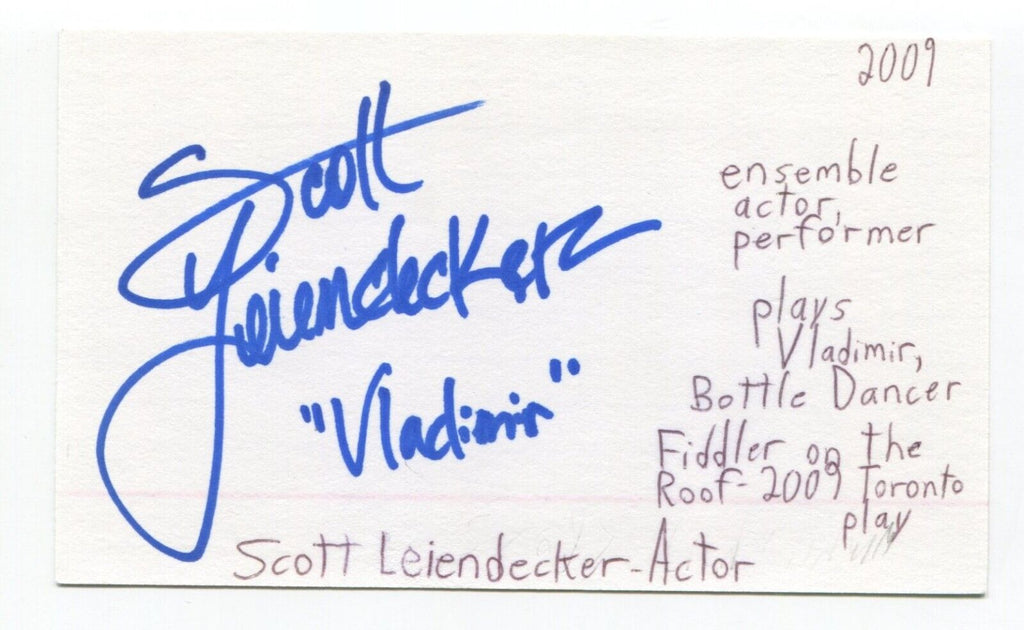 2009
Scott
Leiendecker
"Vladimir"
ensemble
actor,
performer
plays
Vladimir,
Bottle Dancer
Fiddler on the
Roof-2009 Toronto
play
Scott Leiendecker-Actor